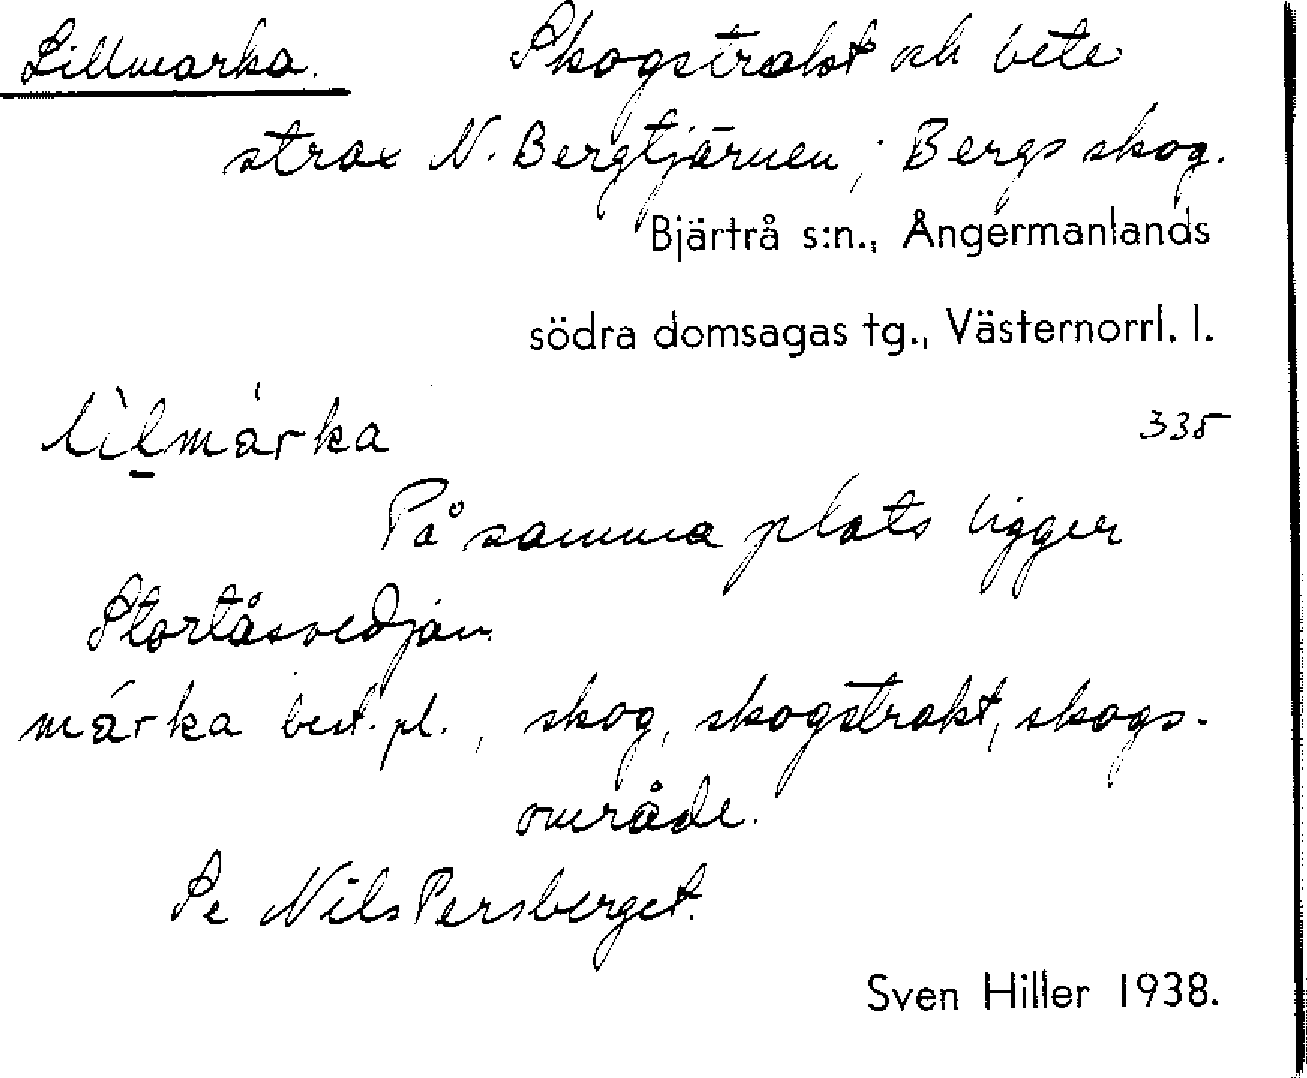 Lillmarka. Skogstrakt och bete
strax N. Bergtjärnen; Bergs skog.
Bjärtrå s:n., Ångermanlands
södra domsagas tg., Västernorrl. l.
lìlmárka 335
På samma plats ligger
Stortåsvedjan.
márka best. pl., skog, skogstrakt, skogs-
område.
Se Nils Persberget.
Sven Hiller 1938.